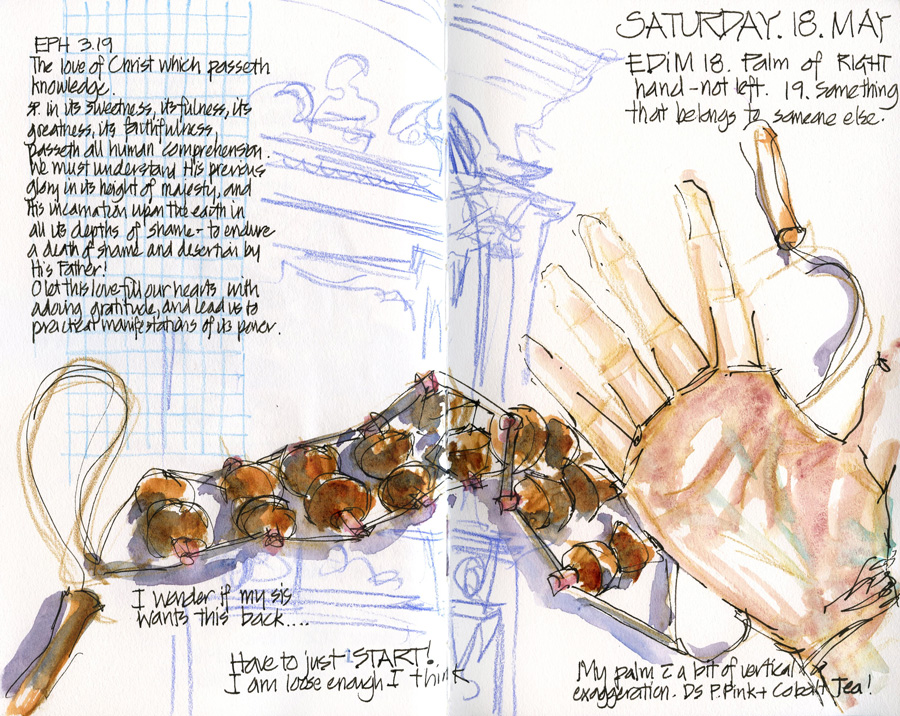 EPH 3.19
The love of Christ which passeth
knowledge.
in its sweetness, its fulness, its
greatness, its faithfulness,
passeth all human comprehension.
We must understand His previous
glory in its height of majesty, and
His incarnation upon the earth in
all its depths of shame - to endure
a death of shame and desertion by
His Father!
O let this love fill our hearts with
adoring gratitude, and lead us to
practical manifestations of its power.
SATURDAY. 18. MAY
EDiM 18. Palm of RIGHT
hand - not left. 19. Something
that belongs to someone else.
I wonder if my sis
wants this back....
Have to just START!
I am loose enough I think
My palm a bit of vertical
exaggeration. DS P.Pink + Cobalt Tea!